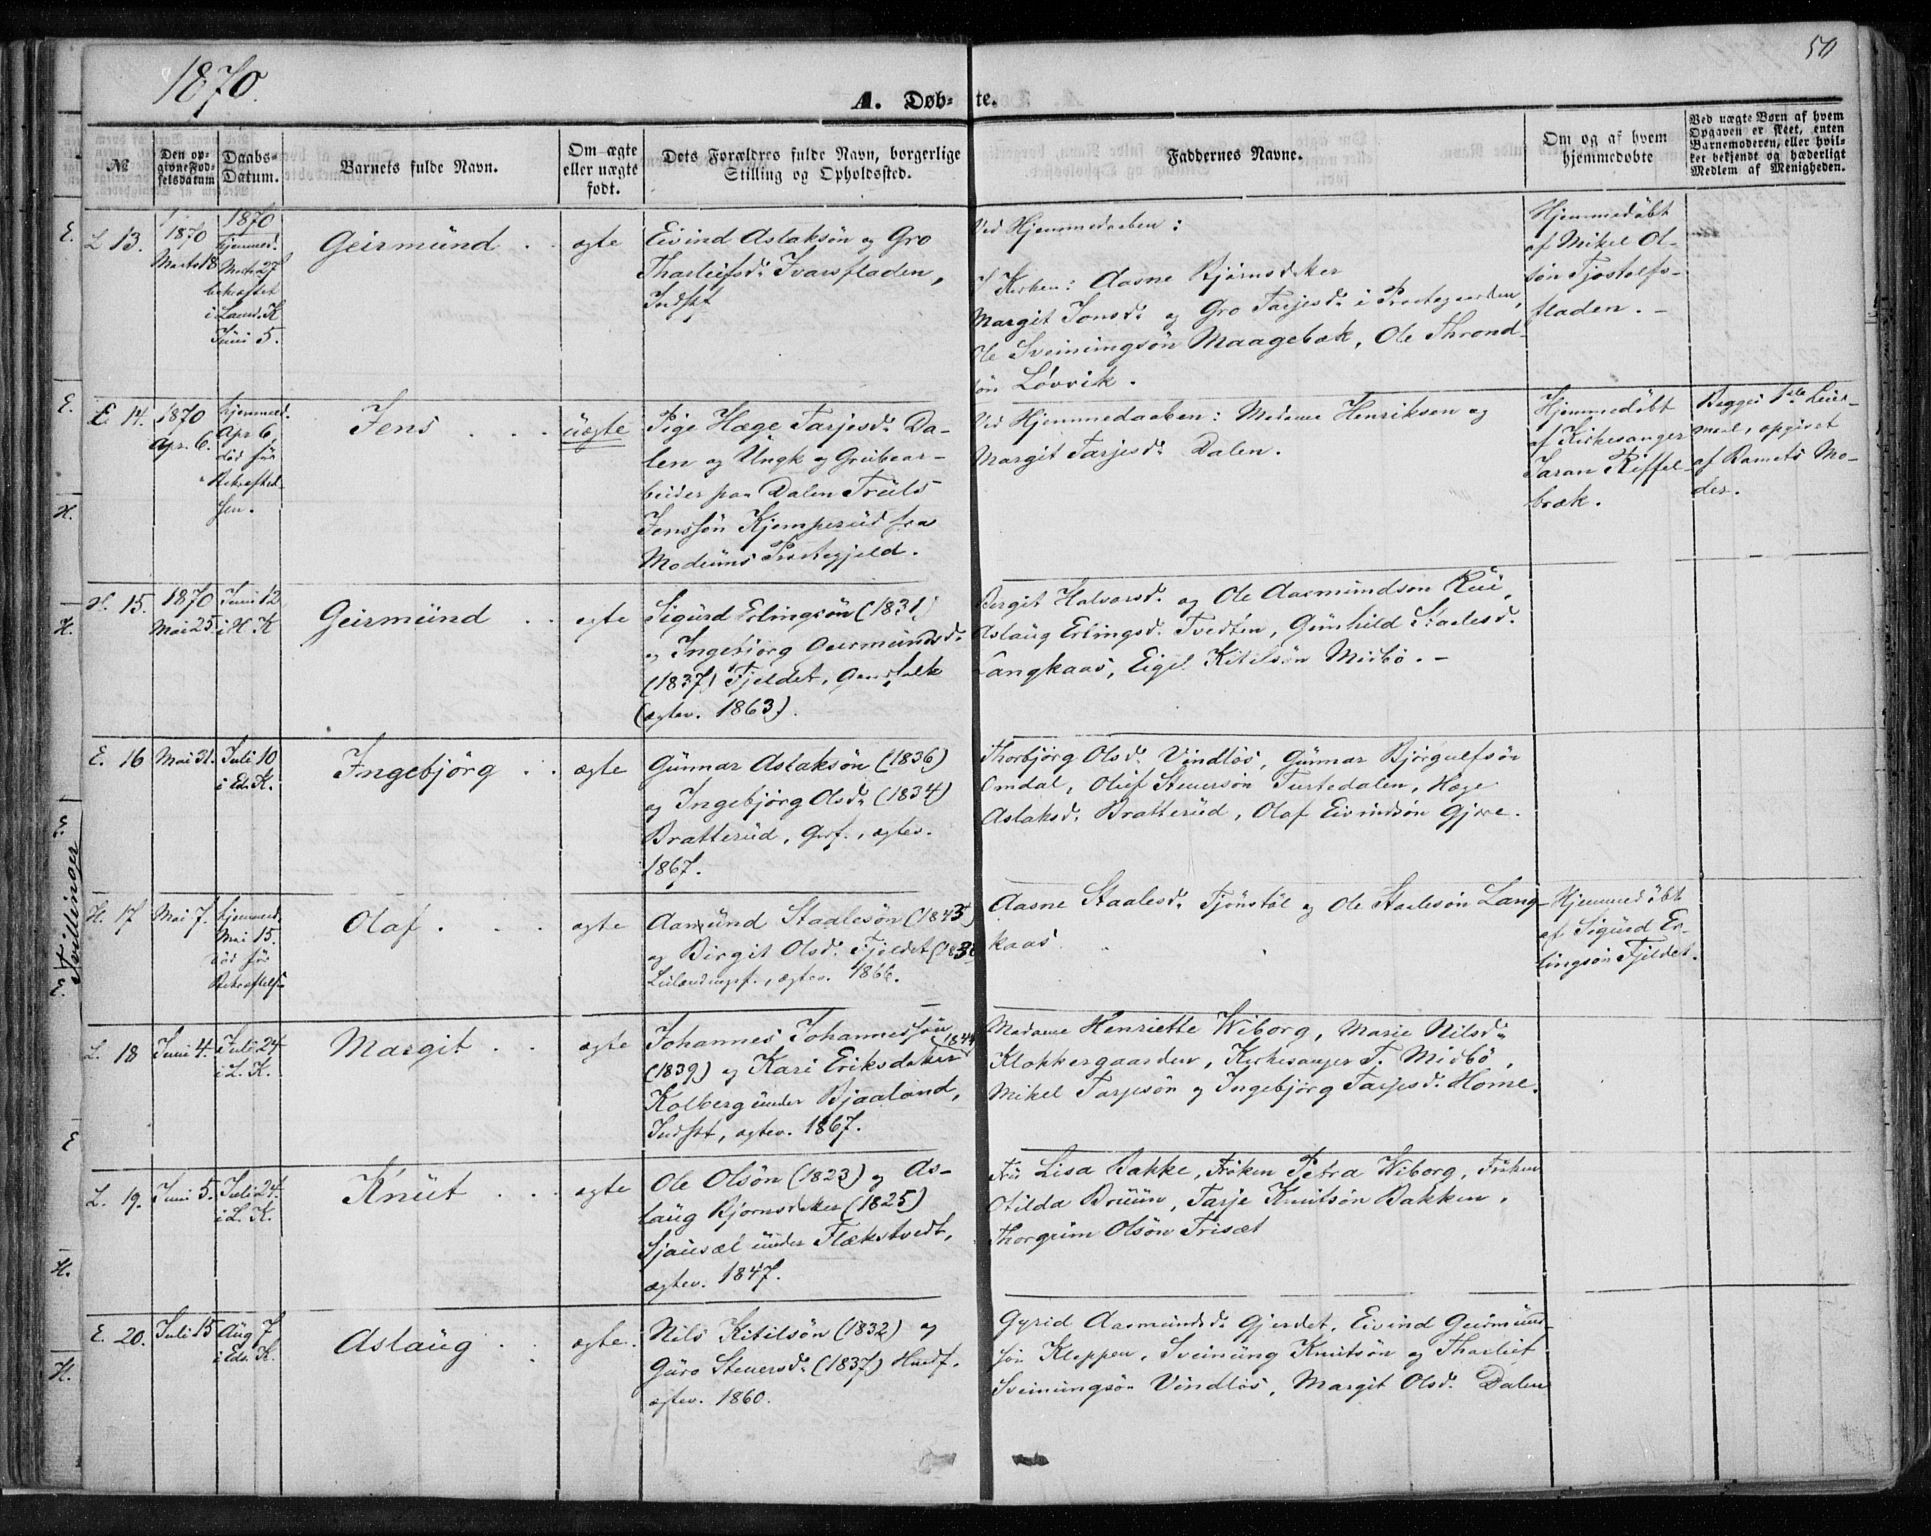 1870.
50
A. Døb-te.
№
Den opgivne Fødselsdatum
Daabs-Datum.
Barnets fulde Navn.
Om ægte eller uægte født.
Dets Forældres fulde Navn, borgerlige Stilling og Opholdssted.
Faddernes Navne.
Om og af hvem hjemmedøbte
Ved uægte Børn af hvem Opgaven er skeet, enten Barnemoderen, eller hvilket bekjendt og hæderligt Medlem af Menigheden.
L 13.
1870
Marts 18
1870
Hjemmed.
Marts 27
bekræftet
i Laurd. K
Juni 5.
Geirmund
ægte
Eivind Aslaksøn og Gro
Tharleifsd. Ivarsfladen,
Indst
Ved Hjemmedaaben:
I Kirken: Aasne Bjørnsdtter
Margit Jonsd. og Gro Tarjesd. i Præstegaarden,
Ole Sveinungsøn Maagebæk, Ole Thrond-
søn Løvvik.
Hjemmedøbt
af Mikel Ol-
søn Tjostolfs-
fladen.
E 14.
1870
Apr. 6.
hjemmed.
Apr 6,
død før
Bekræftel-
sen.
Jens
uægte
Pige Hæge Tarjesd. Da-
len og Ungk og Grubear-
beider paa Dalen Truls
Jenssøn Kjemperud fra
Modums Præstegjeld.
Ved Hjemmedaaben: Madame Henrikson og
Margit Tarjesd. Dalen.
Hjemmedøbt
af Kirkesanger
Jaran Riffel-
bræk.
Begges 1ste Leier-
maal, opgivet
af Barnets Mo-
der.
H. 15.
1870
Mai 25.
Juni 12
i H. K
Geirmund
ægte
Sigurd Erlingsøn (1831)
og Ingebjørg Geirmundsd.
(1837) Fjeldet, Gaardfolk
(ægtev. 1863).
Birgit Halvorsd. og Ole Aasmundsøn Rui,
Aslaug Erlingsd. Tvedten, Gunhild Staalesd.
Langkaas, Eigel Kitilsøn Midbø.
E. 16
Mai 31.
Juli 10
i Eds. K.
Ingebjørg
ægte
Gunnar Aslaksøn (1836)
og Ingebjørg Olsd. (1834)
Bratterud, Grf., ægtev.
1867.
Thorbjørg Olsd. Vindløs, Gunnar Bjørgulfsøn
Omdal, Oluf Steversøn Turtedalen, Hæge
Aslaksd. Bratterud, Olaf Eivindsøn Gjøre.
H. 17
Mai 7.
hjemmed.
Mai 15.
død før
Bekræftels.
Olaf
ægte
Aasmund Staalesøn (1843)
og Birgit Olsd. Fjeldet (1838
Leilændingsf., ægtev. 1866.
Aasne Staalesd. Tjønstøl og Ole Staalesøn Lang-
kaas
Hjemmedøbt
af Sigurd Er-
lingsøn Fjeldet.
L. 18
Juni 4.
Juli 24
i L. K.
Margit
ægte
Johannes Johannessøn
(1839) og Kari Eriksdatter (1844
Kolberg under Bjaaland,
Indst, ægtev. 1867.
Madame Henriette Wiborg, Marie Nilsd.
Klokkergaarden, Kirkesanger T. Midbø,
Mikel Tarjesøn og Ingebjørg Tarjesd. Homme.
L. 19.
Juni 5.
Juli 24.
i L. K.
Knut
ægte
Ole Olsøn (1823) og As-
laug Bjørnsdtter (1825)
Sjausæt under Flækstvedt,
ægtev. 1847.
Fru Lisa Bakke, Frøken Petra Wiborg, Frøken
Otilda Bruun, Tarje Knutsøn Bakken,
Thorgrim Olsøn Trisæt
E. 20.
Juli 15
Aug 7
i Eds. K.
Aslaug
ægte.
Nils Kitilsøn (1832) og
Guro Steversd. (1837) Husf.
ægtev. 1860.
Gyrid Aasmundsd. Gjerdet, Eivind Geirmund-
søn Kleppen, Sveinung Knutsøn og Tharleif
Sveinungsøn Vindløs, Margit Olsd. Dalen
E.
E.
H.
H.
E
Tvillinger
E.
E
H.
H.